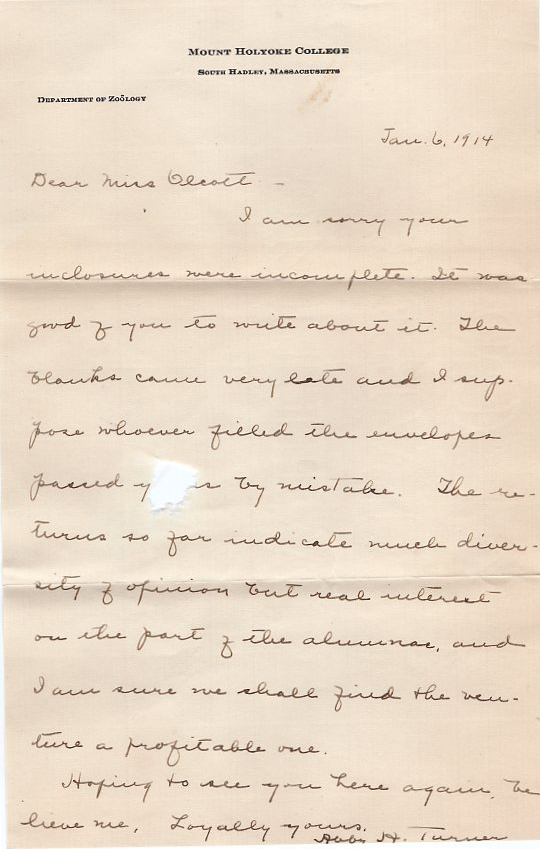 MOUNT HOLYOKE COLLEGE
SOUTH HADLEY, MASSACHUSETTS
DEPARTMENT OF ZOÖLOGY
Jan. 6, 1914
Dear Miss Olcott —
I am sorry your
inclosures were incomplete. It was
good of you to write about it. The
blanks came very late and I sup-
pose whoever filled the envelopes
passed y s by mistake. The re-
turns so far indicate much diver-
sity of opinion but real interest
on the part of the alumnae, and
I am sure we shall find the ven-
ture a profitable one.
Hoping to see you here again, be
lieve me, Loyally yours,
Abby H. Turner